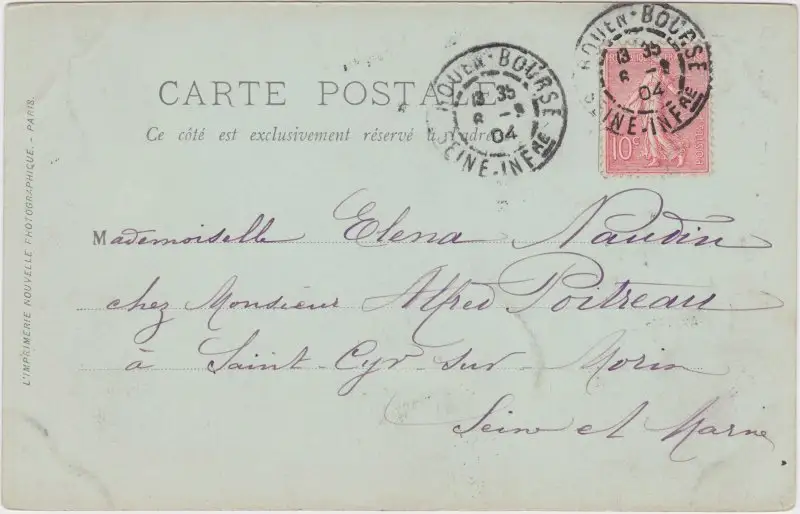 ROUEN-BOURSE
13 35
6 -9
04
SEINE-INFRE
ROUEN-BOURSE
13 35
6 -9
04
SEINE-INFRE
10c
POSTES
CARTE POSTALE
Ce côté est exclusivement réservé à l'adresse
Mademoiselle Elena Naudin
chez Monsieur Alfred Poitreau
à Saint-Cyr-sur-Morin
Seine et Marne
L'IMPRIMERIE NOUVELLE PHOTOGRAPHIQUE. - PARIS.